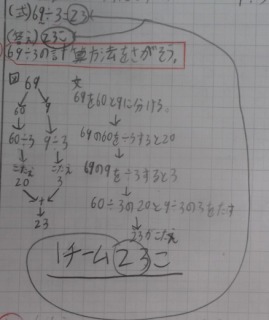 (式)69÷3=23
(答え)23こ
69÷3の計算方法をさがそう。
図
69
60 9
60÷3 9÷3
こたえ こたえ
20 3
+
23
文
69を60と9に分ける。
69の60を÷3すると20
69の9を÷3すると3
60÷3の20と9÷3の3をたす
23がこたえ
1チーム23こ